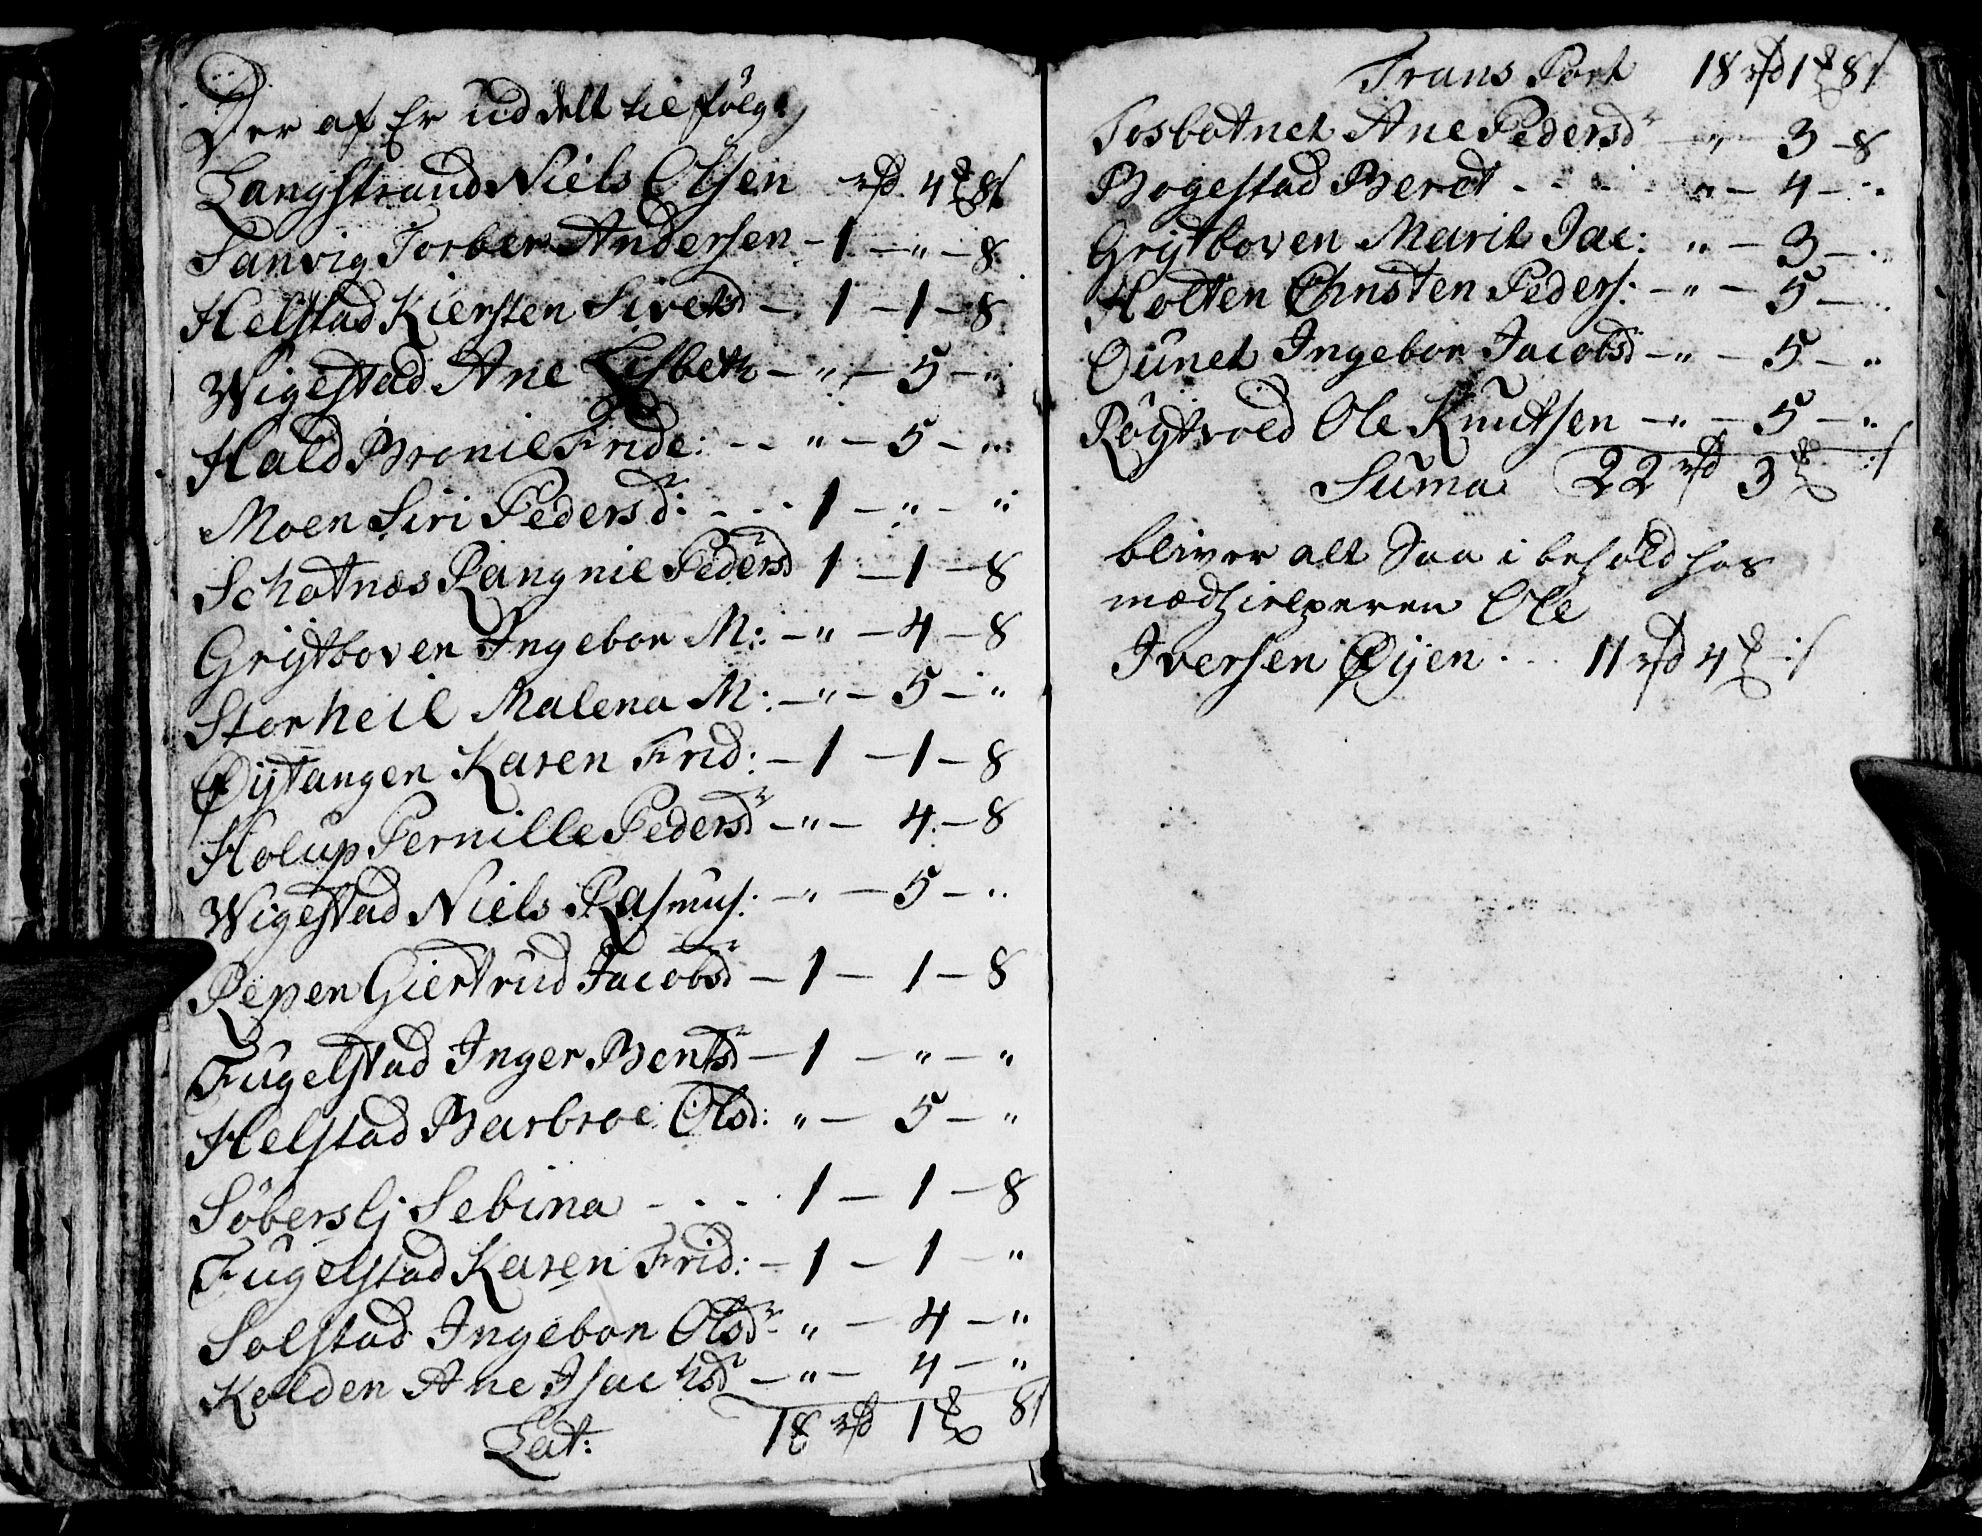 Der af Er uddelt til følg:
Langstrand Niels Olsen rd 4 8s
Sanvig Torber Andersen - 1 - " - 8
Helstad Kiersten Sivertsd - 1 - 1 - 8
Wigestad Ane Lisbeth - " - 5 - "
Hald Bronil Fride: - - " - 5 - "
Moen Siri Pedersd: - - - 1 - " - "
Schotnæs Rangnil Pedersd 1 - 1 - 8
Grytboven Ingebor M: - " - 4 - 8
Storheil Malena M: - " - 5 - "
Øytangen Karen Frid: - 1 - 1 - 8
Holup Pernille Pedersdr - " - 4 - 8
Wigestad Niels Rasmus: - " - 5 - "
Repen Giertrud Jacobsdr - 1 - 1 - 8
Fugelstad Inger Bentsdr - 1 - " - "
Helstad Barbroe Olsd: " - 5 - "
Søbersli Sebina - - - 1 - 1 - 8
Fugelstad Karen Frid: - 1 - 1 - "
Solstad Ingebor Olsdr - " - 4 - "
Kolden Ane Isachsdr - " - 4 - "
Lat: 18 rd 1 8s
Trans Port 18 rd 1 8s
Tosbotnet Ane Pedersdr - " - 3 - 8
Bogestad Beret - - - " - 4 - "
Grytboven Marit Jac: " - 3 - "
Holten Christen Peders: - " - 5 - "
Ounet Ingebor Jacobsd - " - 5 - "
Røgtvold Ole Knutsen - " - 5 - "
Suma 22 rd 3 :s
bliver alt Saa i behold hos
medhielperen Ole
Iversen Øyen . . . 11 rd 4 :s